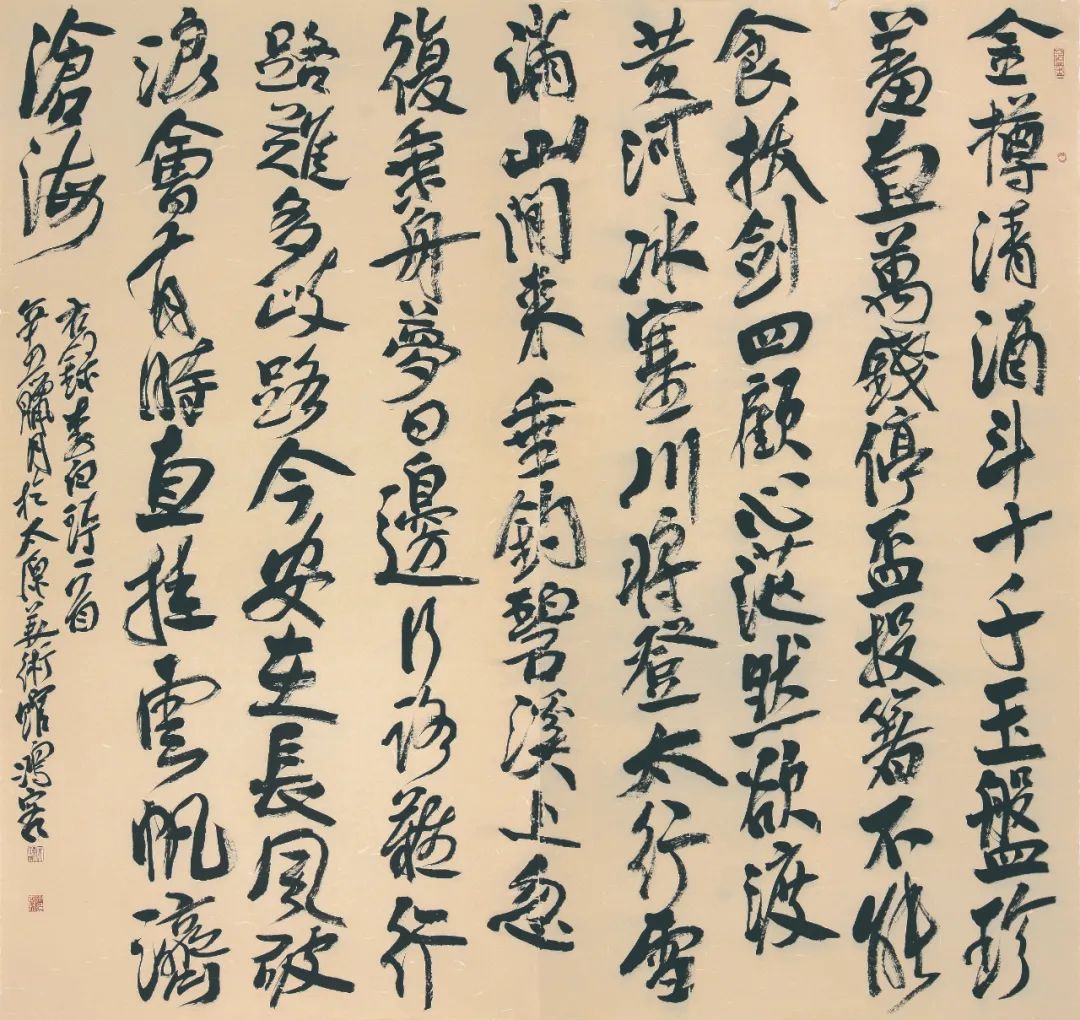 金樽清酒斗十千玉盤珍
羞直萬錢停盃投箸不能
食拔劍四顧心茫然欲渡
黄河冰塞川將登太行雪
滿山閒來垂釣碧溪上忽
復乘舟夢日邊行路難行
路難多歧路今安在長風破
浪會有時直挂雲帆濟
滄海
右録李白詩一首
辛丑臘月於太原美術館